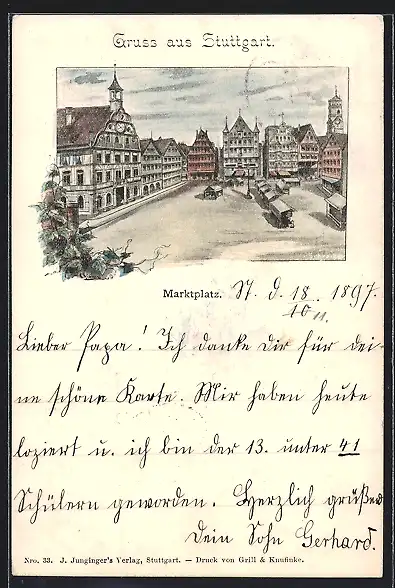 Gruss aus Stuttgart.
Marktplatz. St. d. 18/10 1897.
Lieber Papa! Ich danke Dir für dei-
ne schöne Karte. Mir haben heute
loziert u. ich bin der 13. unter 41
Schülern geworden. Herzlich grüßend
Dein Sohn Gerhard.
Nro. 33. J. Junginger's Verlag, Stuttgart. — Druck von Grill & Knufinke.